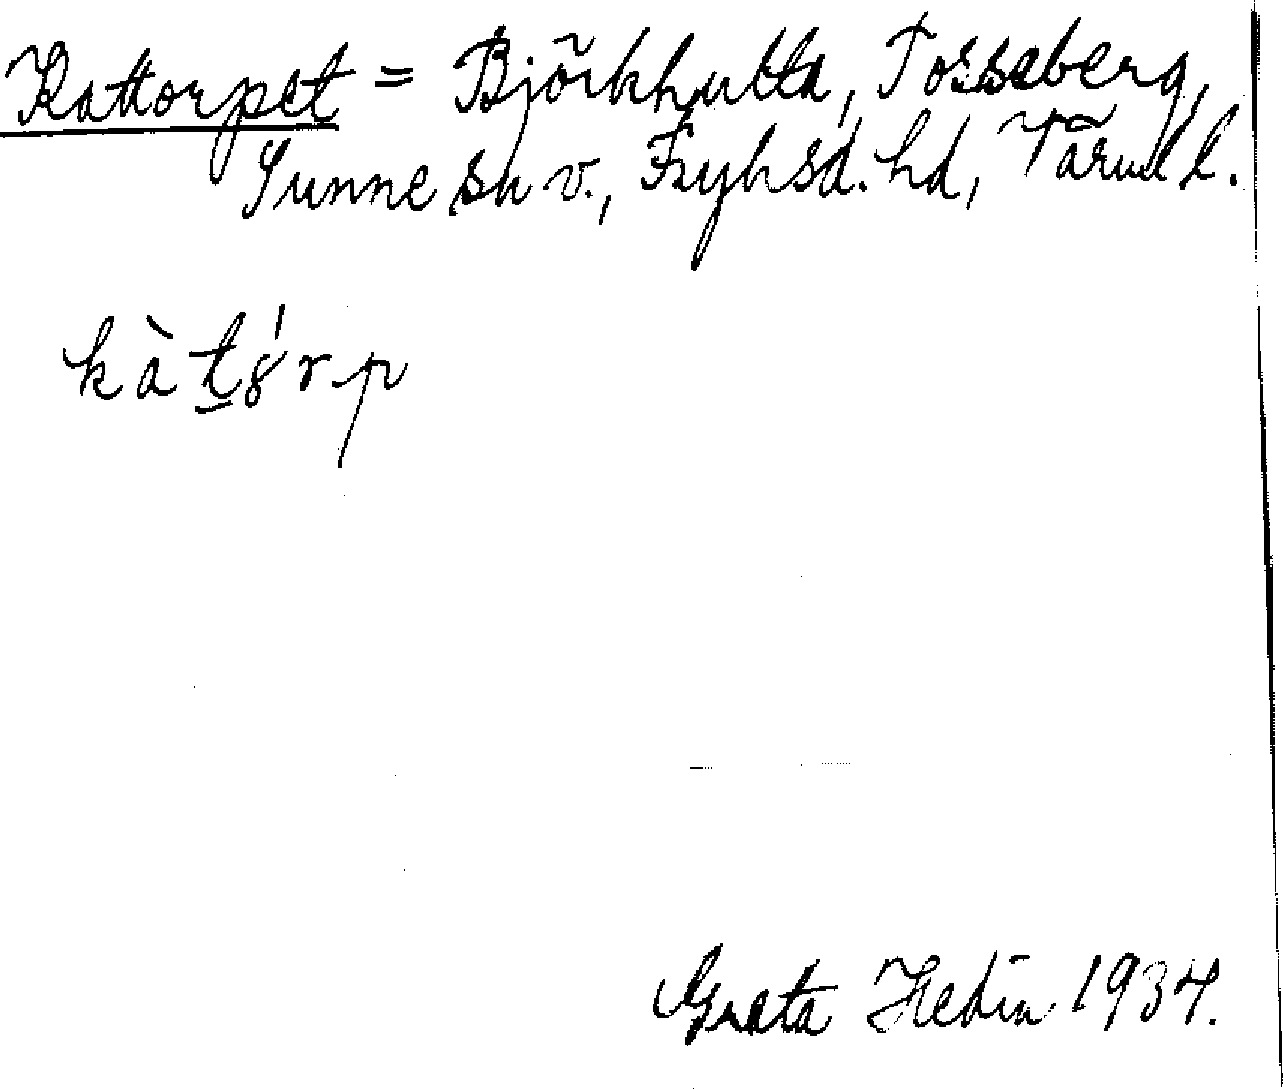 Kattorpet = Björkhutta, Tosseberg,
Sunne sn v., Fryksd. hd, Värml l.
Greta Hedin 1934.